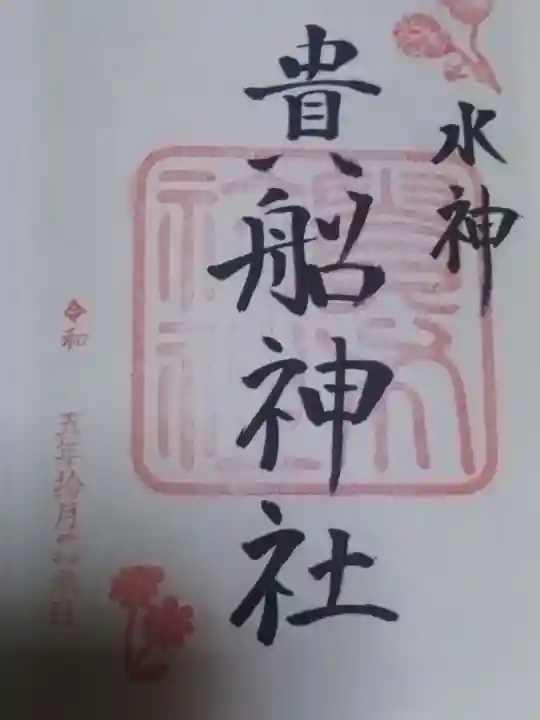 水神
貴船神社
令和
五年拾月